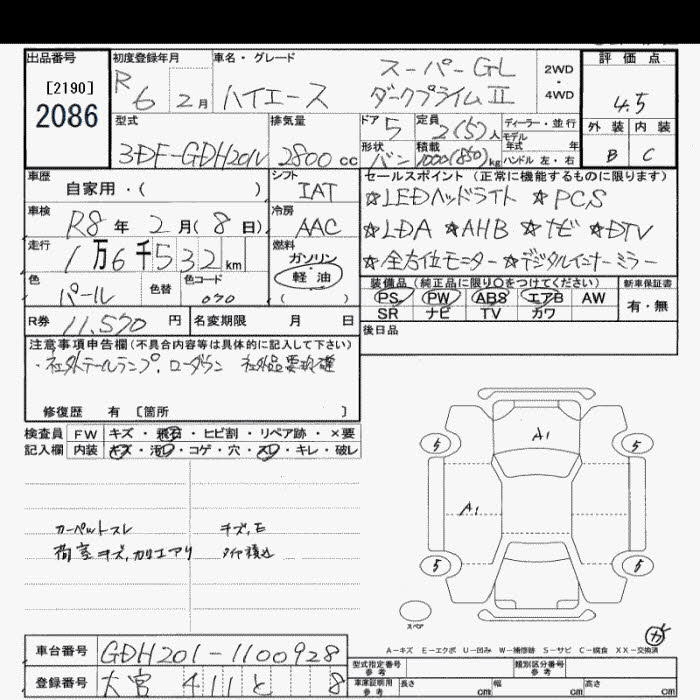 出品番号 初度登録年月 車名・グレード 評価点
[2190]
2086
R 6 2月
ハイエース
スーパーGL
ダークプライムⅡ
2WD
・
4WD
4.5
外装 内装
B C
型式 排気量 ドア 定員 ディーラー・並行
3DF-GDH201V 2800cc 5 2(5)人
モデル 年式 年
形状 積載 ハンドル 左・右
バン 1000(850)kg
車歴 シフト セールスポイント(正常に機能するものに限ります)
自家用・( ) IAT
☆LEDヘッドライト ☆PCS
車検 冷房
R8年2月(8日) AAC
☆LDA ☆AHB ☆ナビ ☆DTV
走行 燃料
1万6千532km
ガソリン
軽油
( )
☆全方位モニター ☆デジタルインナーミラー
色 色替 色コード
パール 070
装備品(純正品に限り○をつけてください) 新車保証書
PS PW ABS エアB AW
SR ナビ TV カワ
有・無
R券 11,570円 名変期限 月 日
後日品
注意事項申告欄(不具合内容等は具体的に記入して下さい)
・社外テールランプ、ローダウン 社外品要確認
修復歴 有 [箇所 ]
検査員 FW キズ・飛石・ヒビ割・リペア跡・×要
記入欄 内装 キズ・汚れ・コゲ・穴・スレ・キレ・破レ
A1
5 5
A1
5 5
スペア
カーペットスレ
荷室キズ,カリエアリ
キズ,E
タイヤ積込
A-キズ E-エクボ U-凹み W-補修跡 S-サビ C-腐食 XX-交換済
車台番号 GDH201-1100928
登録番号 大宮 411 と 8
型式指定番号 参考 類別区分番号 参考
車庫証明用 参考 長さ cm 幅 cm 高さ cm